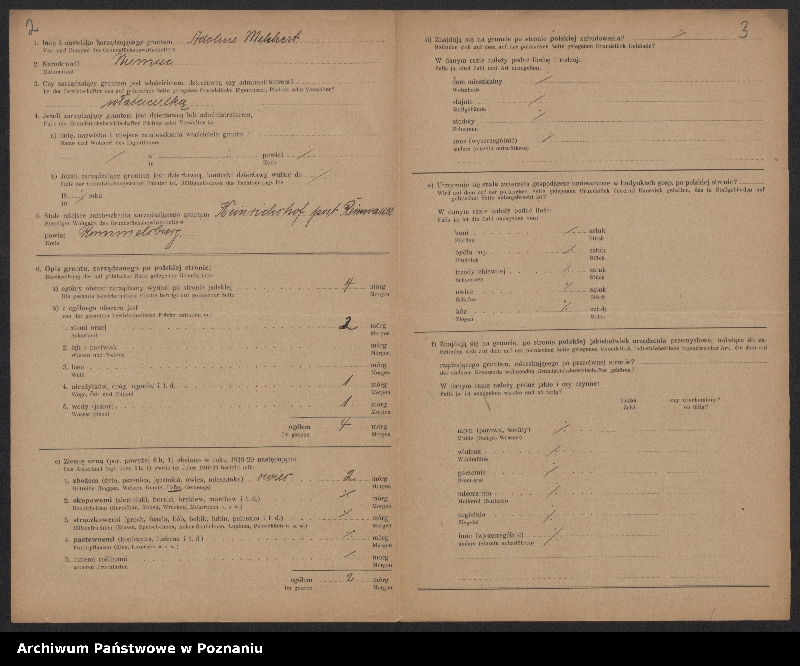 2
1. Imię i nazwisko zarządzającego gruntem Adoline Melchert
Vor- und Zuname des Grundstücksbewirtschafters
2. Narodowość Niemiec
Nationalität
3. Czy zarządzający gruntem jest właścicielem, dzierżawcą, czy administratorem?
Ist der Bewirtschafter des auf polnischer Seite gelegenen Grundstücks Eigentümer, Pächter oder Verwalter?
właścicielką
4. Jeżeli zarządzający gruntem jest dzierżawcą lub administratorem,
Falls der Grundstücksbewirtschafter Pächter oder Verwalter ist
a) imię, nazwisko i miejsce zamieszkania właściciela gruntu
Name und Wohnort des Eigentümers
w powiat
in Kreis
b) Jeżeli zarządzający gruntem jest dzierżawcą, kontrakt dzierżawy ważny do
Falls der Grundstücksbewirtschafter Pächter ist, Gültigkeitsdauer des Pachtvertrags bis
19 roku
19
5. Stałe miejsce zamieszkania zarządzającego gruntem Heinrichshof post
Ständiger Wohnort des Grundstücksbewirtschafters
powiat Rummelsburg
Kreis
6. Opis gruntu, zarządzanego po polskiej stronie:
Beschreibung des auf polnischer Seite gelegenen Grundstücks
a) ogólny obszar zarządzany wynosi po stronie polskiej 4 mórg
Die gesamte bewirtschaftete Fläche beträgt auf polnischer Seite Morgen
b) z ogólnego obszaru jest
von der gesamten bewirtschafteten Fläche entfallen auf
1. ziemi ornej 2 mórg
Ackerland Morgen
2. łąk i pastwisk mórg
Wiesen und Weiden Morgen
3. lasu mórg
Wald Morgen
4. nieużytków, dróg, ugorów i t. d. 1 mórg
Wege, Öd- und Unland Morgen
5. wody (jezior) 1 mórg
Wasser (Seen) Morgen
ogółem 4 mórg
Im ganzen Morgen
c) Ziemię orną (por. powyżej 6 b, 1) obsiano w roku 1919/20 następująco:
Das Ackerland (vgl. oben 6 b, 1) wurde im Jahre 1919/20 bestellt mit:
1. zbożem (żyto, pszenica, jęczmień, owies, mieszanka) owies 2 mórg
Getreide (Roggen, Weizen, Gerste, Hafer, Gemenge) Morgen
2. okopowemi (ziemniaki, buraki, brukiew, marchew i t. d.) mórg
Hackfrüchten (Kartoffeln, Rüben, Wrucken, Mohrrüben u. s. w.) Morgen
3. strączkowemi (groch, fasola, bób, bobik, łubin, peluszka i t. d.) mórg
Morgen
4. pastewnemi (koniczyna, lucerna i t. d.) mórg
Futterpflanzen (Klee, Luzerne u. s. w.) Morgen
5. innemi roślinami mórg
anderen Fruchtarten Morgen
ogółem 2 mórg
Im ganzen Morgen
3
d) Znajdują się na gruncie po stronie polskiej zabudowania?
Befinden sich auf dem auf der polnischen Seite gelegenen Grundstück Gebäude?
W danym razie należy podać liczbę i rodzaj.
Falls ja, sind Zahl und Art anzugeben.
dom mieszkalny
Wohnhaus
stajnie
Stallgebäude
stodoły
Scheunen
inne (wyszczególnić)
andere (einzeln aufzuführen)
e) Utrzymuje się stale zwierzęta gospodarcze umieszczone w budynkach gosp. po polskiej stronie?
W danym razie należy podać ilość:
Falls ja, ist die Zahl anzugeben von:
koni sztuk
Pferden Stück
bydła rog. sztuk
Rindvieh Stück
trzody chlewnej sztuk
Schweinen Stück
owiec sztuk
Schafen Stück
kóz sztuk
Ziegen Stück
f) Znajdują się na gruncie, po stronie polskiej jakiekolwiek urządzenia przemysłowe, należące do za-
rządzającego gruntem, mieszkającego po przeciwnej stronie?
W danym razie należy podać jakie i czy czynne:
Falls ja, ist anzugeben welche und ob tätig?
liczba czy uruchomione?
Zahl ob tätig?
młyn (parowy, wodny)
Mühle (Dampf- Wasser)
wiatrak
Windmühle
gorzelnia
Brennerei
mleczarnia
Molkerei (Butterei)
cegielnia
Ziegelei
inne (wyszczególnić)
andere (einzeln aufzuführen)
Archiwum Państwowe w Poznaniu